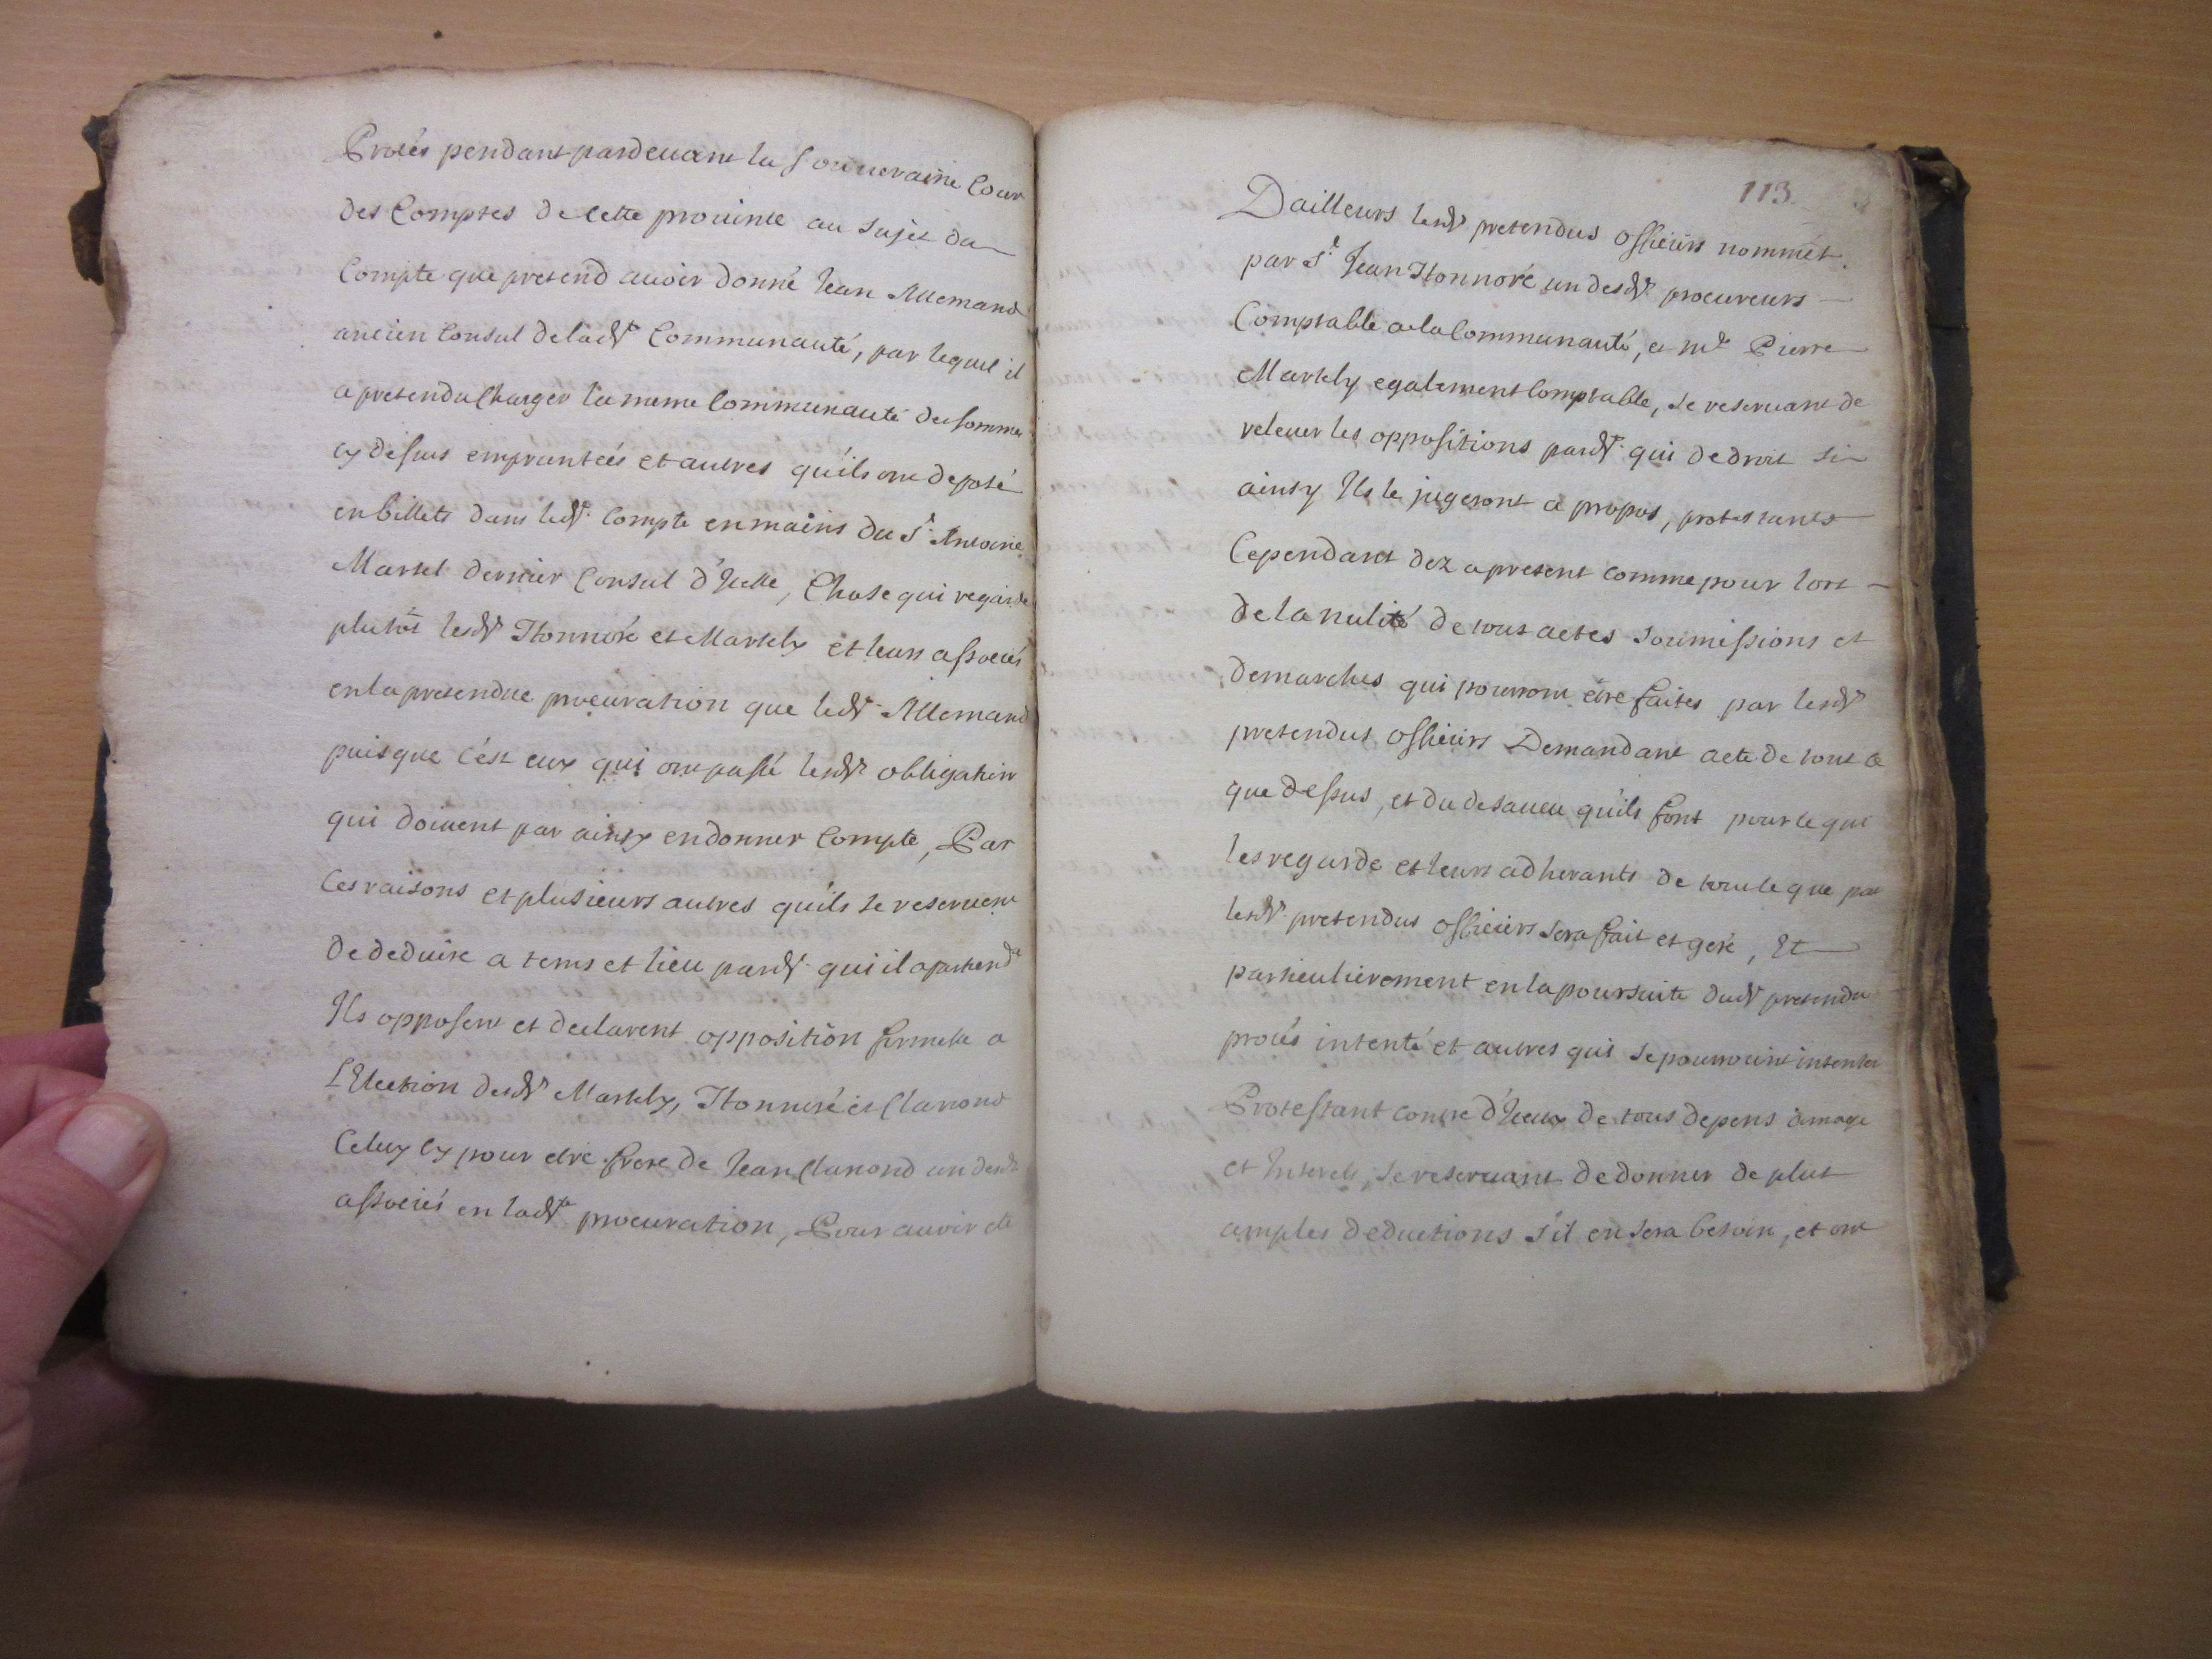 Procés pendant pardeuant la Souueraine Cour
des Comptes de Cette prouince au Sujet du
Compte que pretend auoir donné Jean Allemand
ancien Consul de lad.te Communauté, par lequel il
a pretendu Charger la meme Communauté des sommes
cy dessus empruntées et autres qu'ils ont deposé
en billets dans led.t Compte en mains du S.r Antoine
Martel dernier Consul d'Jcelle, Chose qui regarde
plutôt lesd.ts Honnoré et Martely et leurs associés
en la pretendue procuration que led.t Allemand
puisque c'est eux qui ont passé lesd.ts obligation
qui doiuent par ainsy en donner Compte, Par
Ces raisons et plusieurs autres qu'ils se reseruent
de deduire a tems et lieu pard.t qui il apartiend.a
Ils opposent et declarent opposition formelle a
L'Election desd.ts Martely, Honnoré et Clanond
Celuy Cy pour etre frere de Jean Clanond un desd.ts
associés en lad.te procuration, Pour auoir eté
113.
Dailleurs lesd.ts pretendus officiers nommét
par S.r Jean Honnoré un desd.ts procureurs
Comptable a la Communauté, et m.e Pierre
Martely egalement Comptable, se reseruant de
releuer les oppositions pard.t qui de droit si
ainsy Ils le jugeront a propos, protestants
Cependant dez a present comme pour lors
de la nulité de tout actes soumissions et
demarches qui pourront étre faites par lesd.ts
pretendus officiers Demandant acte de tout ce
que dessus, et du desaueu qu'ils font pour ce qui
les regarde et leurs adherants de tout ce que par
lesd.ts pretendus officiers sera fait et geré, Et
particulierement en la poursuite dud.t pretendu
procés intenté et autres qui se pourroint intenter
Protestant contre d'Jceux de tous depens dmage
et Interets, se reseruant de donner de plus
amples deductions s'il en sera besoin, et ont